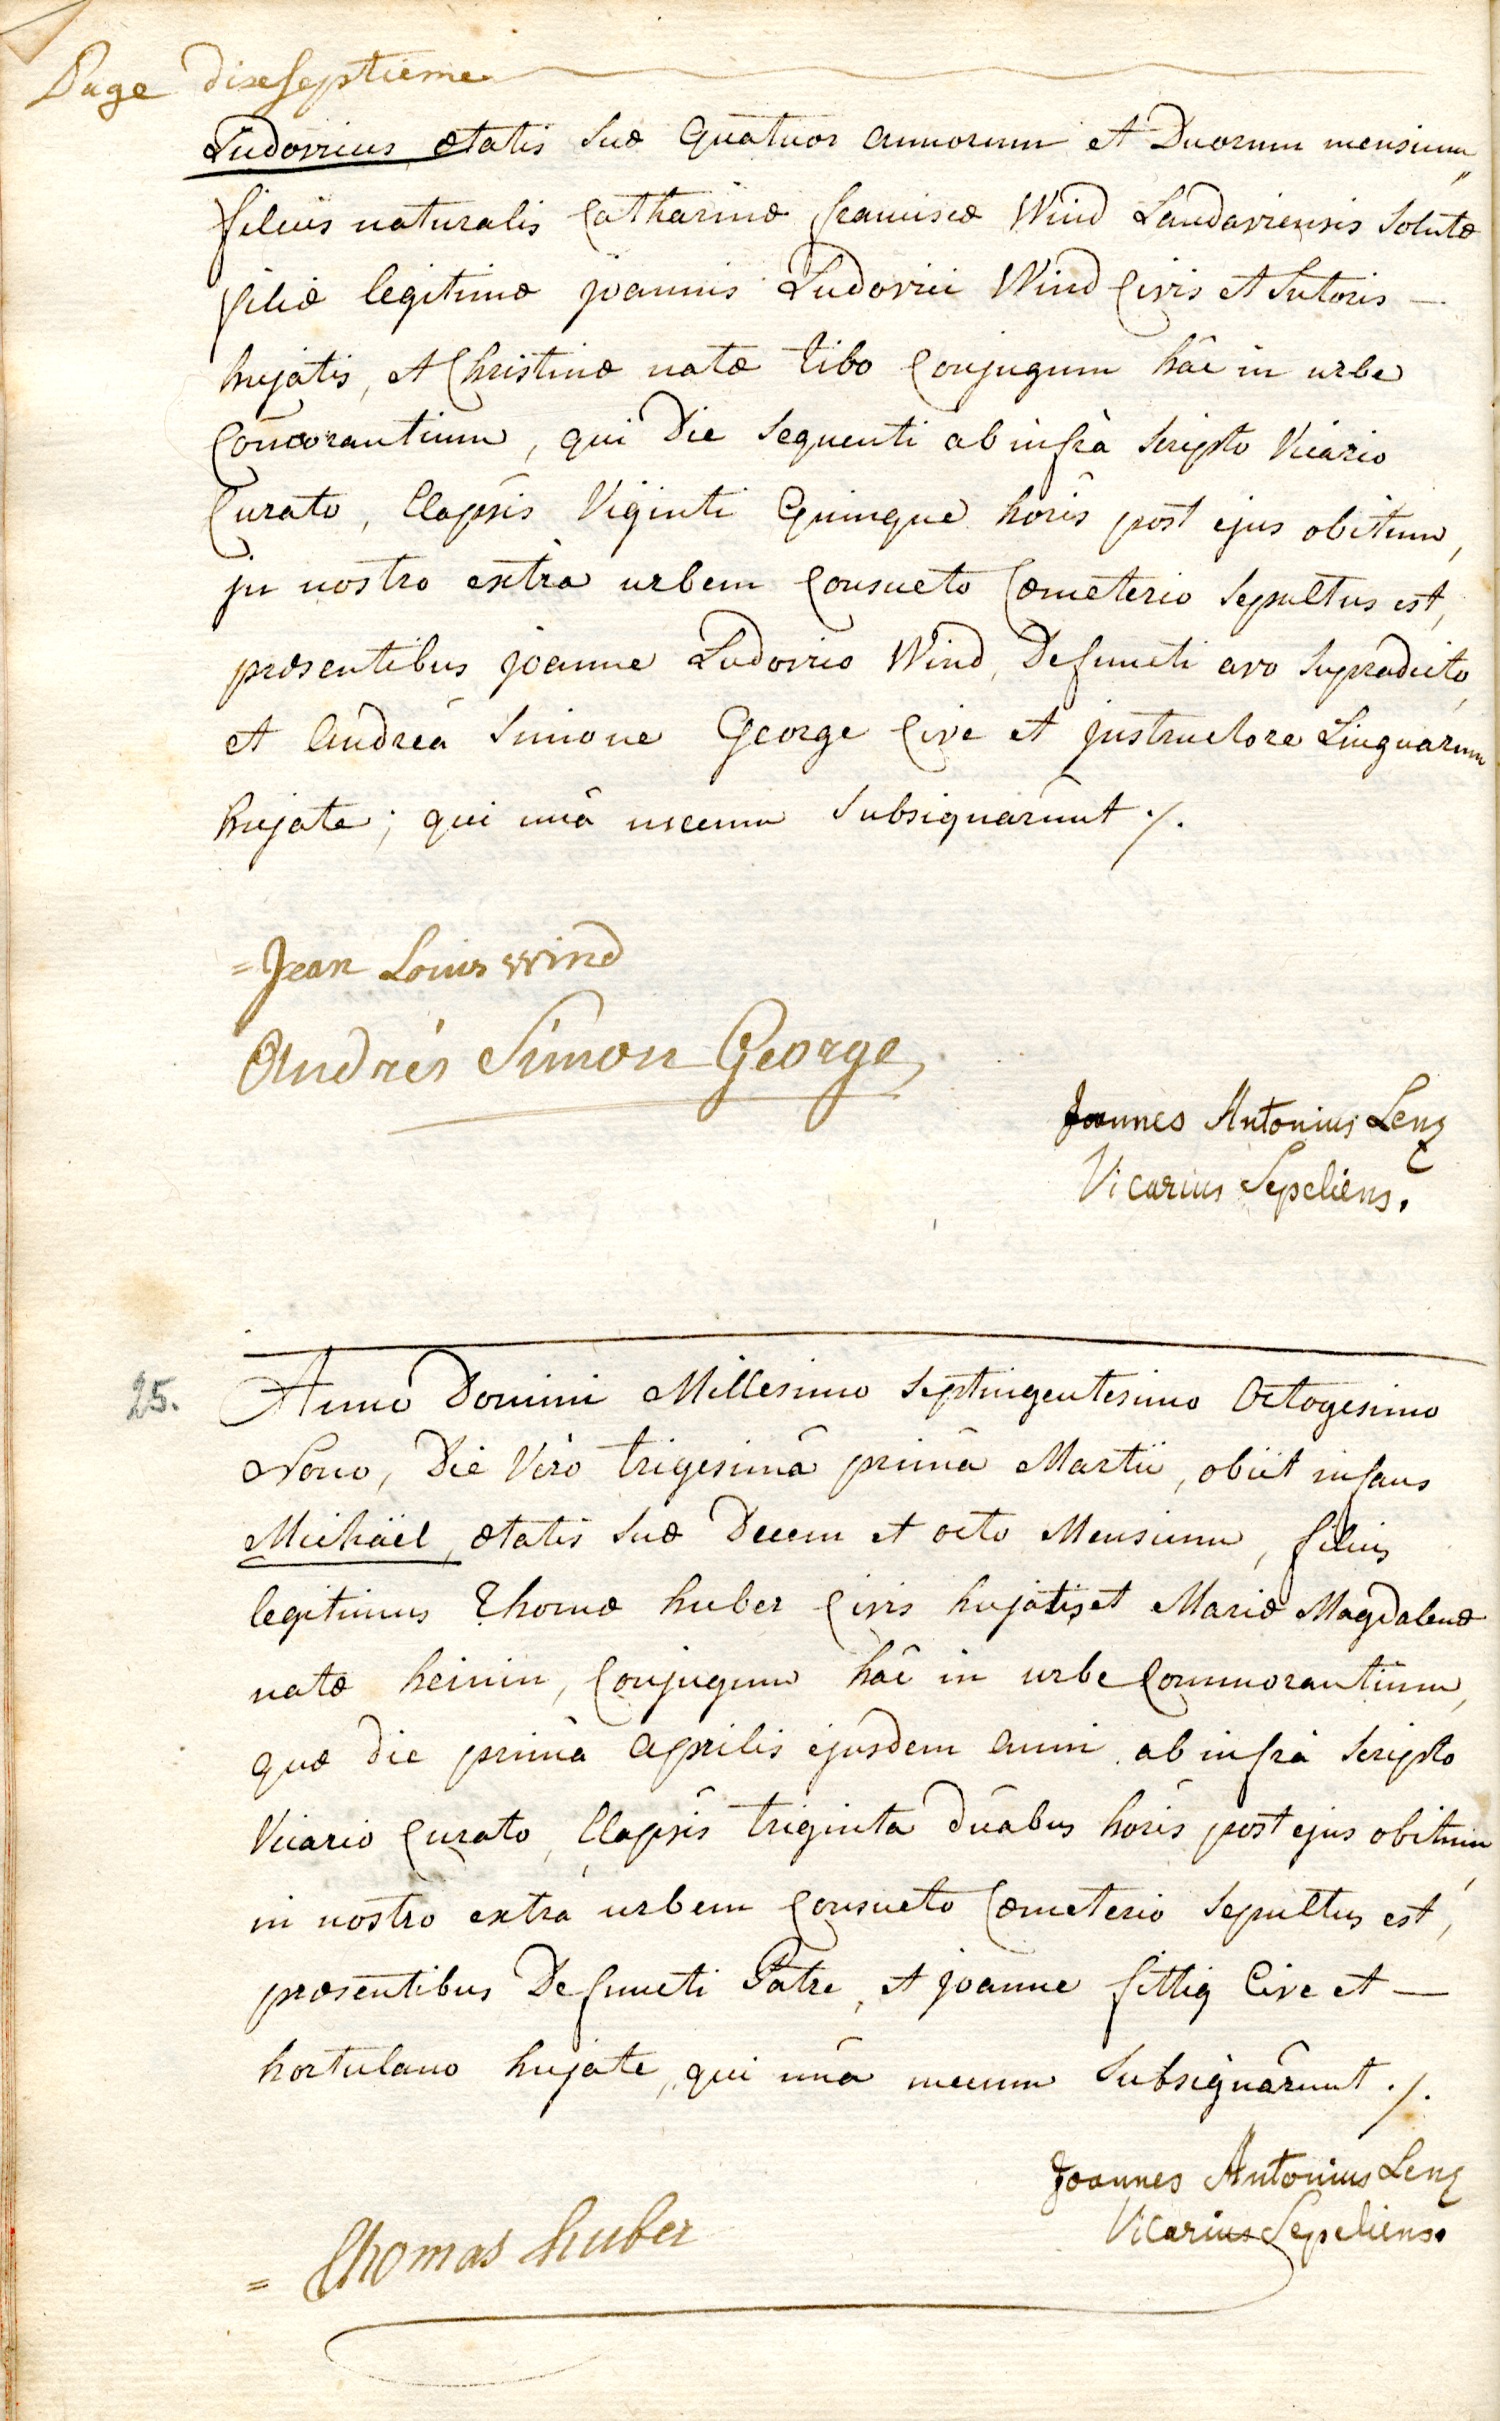 Page dixseptieme
Ludovicus ætatis suæ quatuor annorum et Duorum mensium,
filius naturalis Catharinæ franciscæ Wind Landaviensis Solutæ
filiæ legitimæ joannis Ludovici Wind Civis et Sutoris —
hujatis, et Christinæ natæ Tibo Conjugum hâc in urbe
Commorantium, qui Die sequenti ab infrà scripto Vicario
Curato, Elapsîs Viginti Quinque horîs post ejus obitum,
in nostro extrà urbem Consueto Cœmeterio sepultus est,
præsentibus joanne Ludovico Wind, Defuncti avo supradicto,
et Andreâ Simone George Cive et instructore Linguarum
hujate; qui unâ mecum subsignârunt ./.
= Jean Louis Wind
Andrés Simon George
Joannes Antonius Lenz
Vicarius Sepeliens.
25. Anno Domini Millesimo septingentesimo Octogesimo
Nono, Die Vero trigesimâ primâ Martii, obiit infans
Michäel, ætatis suæ Decem et octo Mensium, filius
legitimus Thomæ huber Civis hujatis, et Mariæ Magdalenæ
natæ heinin, Conjugum hâc in urbe Commorantium,
quæ die primâ Aprilis ejusdem anni ab infrà scripto
Vicario Curato, Elapsîs triginta duâbus horîs post ejus obitum,
in nostro extrà urbem Consueto Cœmeterio sepultus est,
præsentibus Defuncti Patre, et joanne fittig Cive et —
hortulano hujate, qui unâ mecum subsignârunt ./.
Joannes Antonius Lenz
Vicarius Sepeliens.
= Thomas huber